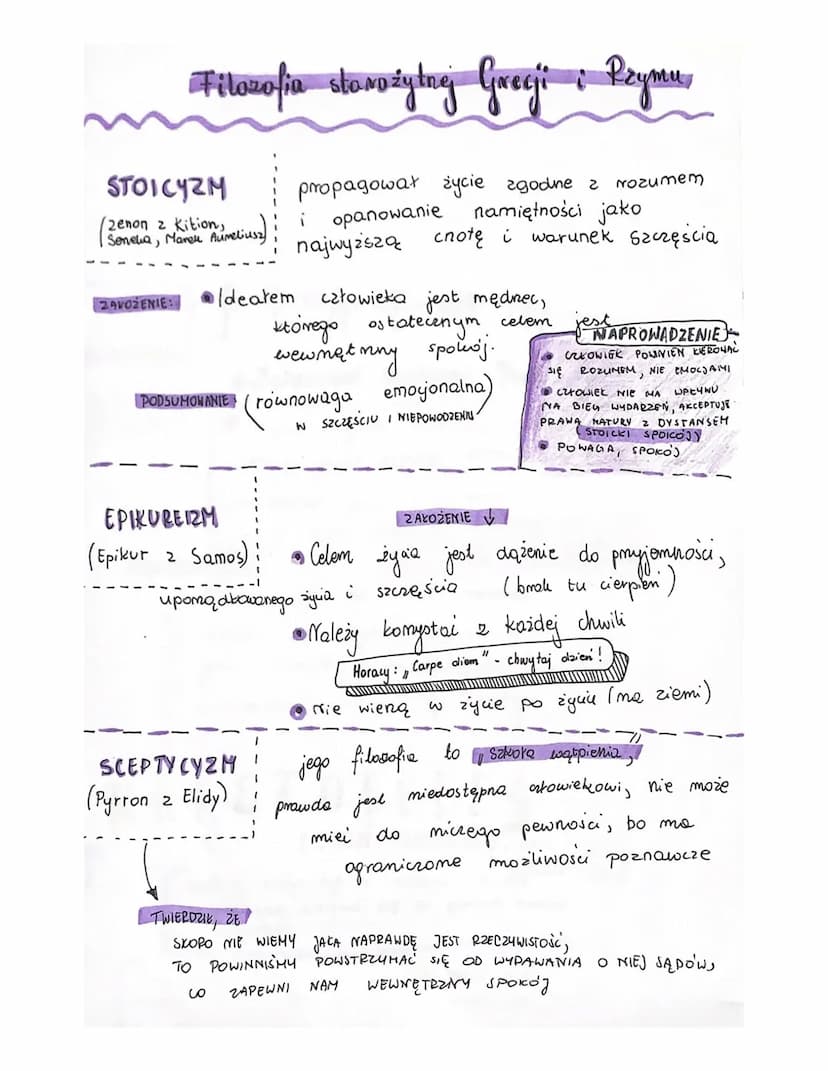 Filozofia starożytnej Grecji i Rzymu
STOICYZM
(Zenon z Kition,
Seneka, Marek Aureliusz)
propagował życie zgodne z rozumem
i opanowanie namiętności jako
najwyższą cnotę i warunek szczęścia
ZAŁOŻENIE:
Ideałem człowieka jest mędrzec,
którego ostatecznym celem jest
wewnętrzny spokój.
PODSUMOWANIE
(równowaga emocjonalna)
W SZCZĘŚCIU I NIEPOWODZENIU
NAPROWADZENIE
CZŁOWIEK POWINIEN KIEROWAĆ
SIĘ ROZUMEM, NIE EMOCJAMI
CZŁOWIEK NIE MA WPŁYWU
NA BIEG WYDARZEŃ, AKCEPTUJE
PRAWA NATURY Z DYSTANSEM
(STOICKI SPOKÓJ)
POWAGA, SPOKÓJ
EPIKUREIZM
(Epikur z Samos)
ZAŁOŻENIE ↓
Celem życia jest dążenie do przyjemności,
uporządkowanego życia i szczęścia (brak tu cierpień)
Należy korzystać z każdej chwili
Horacy: „Carpe diem" - chwytaj dzień!
nie wierzą w życie po życiu (na ziemi)
SCEPTYCYZM
(Pyrron z Elidy)
jego filozofia to „szkoła wątpienia,"
prawda jest niedostępna człowiekowi, nie może
mieć do niczego pewności, bo ma
ograniczone możliwości poznawcze
TWIERDZIŁ, ŻE
SKORO NIE WIEMY JAKA NAPRAWDĘ JEST RZECZYWISTOŚĆ,
TO POWINNIŚMY POWSTRZYMAĆ SIĘ OD WYDAWANIA O NIEJ SĄDÓW,
CO ZAPEWNI NAM WEWNĘTRZNY SPOKÓJ